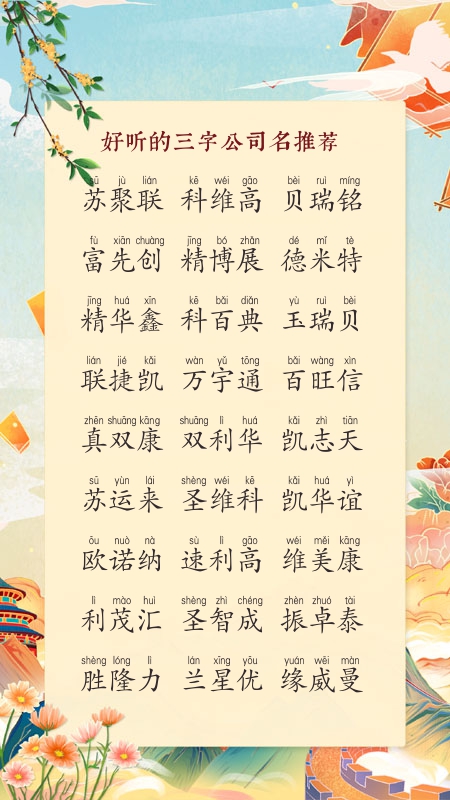 好听的三字公司名推荐
sū jù lián kē wéi gāo bèi ruì míng
苏聚联 科维高 贝瑞铭
fù xiān chuàng jīng bó zhǎn dé mǐ tè
富先创 精博展 德米特
jīng huá xīn kē bǎi diǎn yù ruì bèi
精华鑫 科百典 玉瑞贝
lián jié kǎi wàn yǔ tōng bǎi wàng xìn
联捷凯 万宇通 百旺信
zhēn shuāng kāng shuāng lì huá kǎi zhì tiān
真双康 双利华 凯志天
sū yùn lái shèng wéi kē kǎi huá yì
苏运来 圣维科 凯华谊
ōu nuò nà sù lì gāo wéi měi kāng
欧诺纳 速利高 维美康
lì mào huì shèng zhì chéng zhèn zhuó tài
利茂汇 圣智成 振卓泰
shèng lóng lì lán xīng yōu yuán wēi màn
胜隆力 兰星优 缘威曼